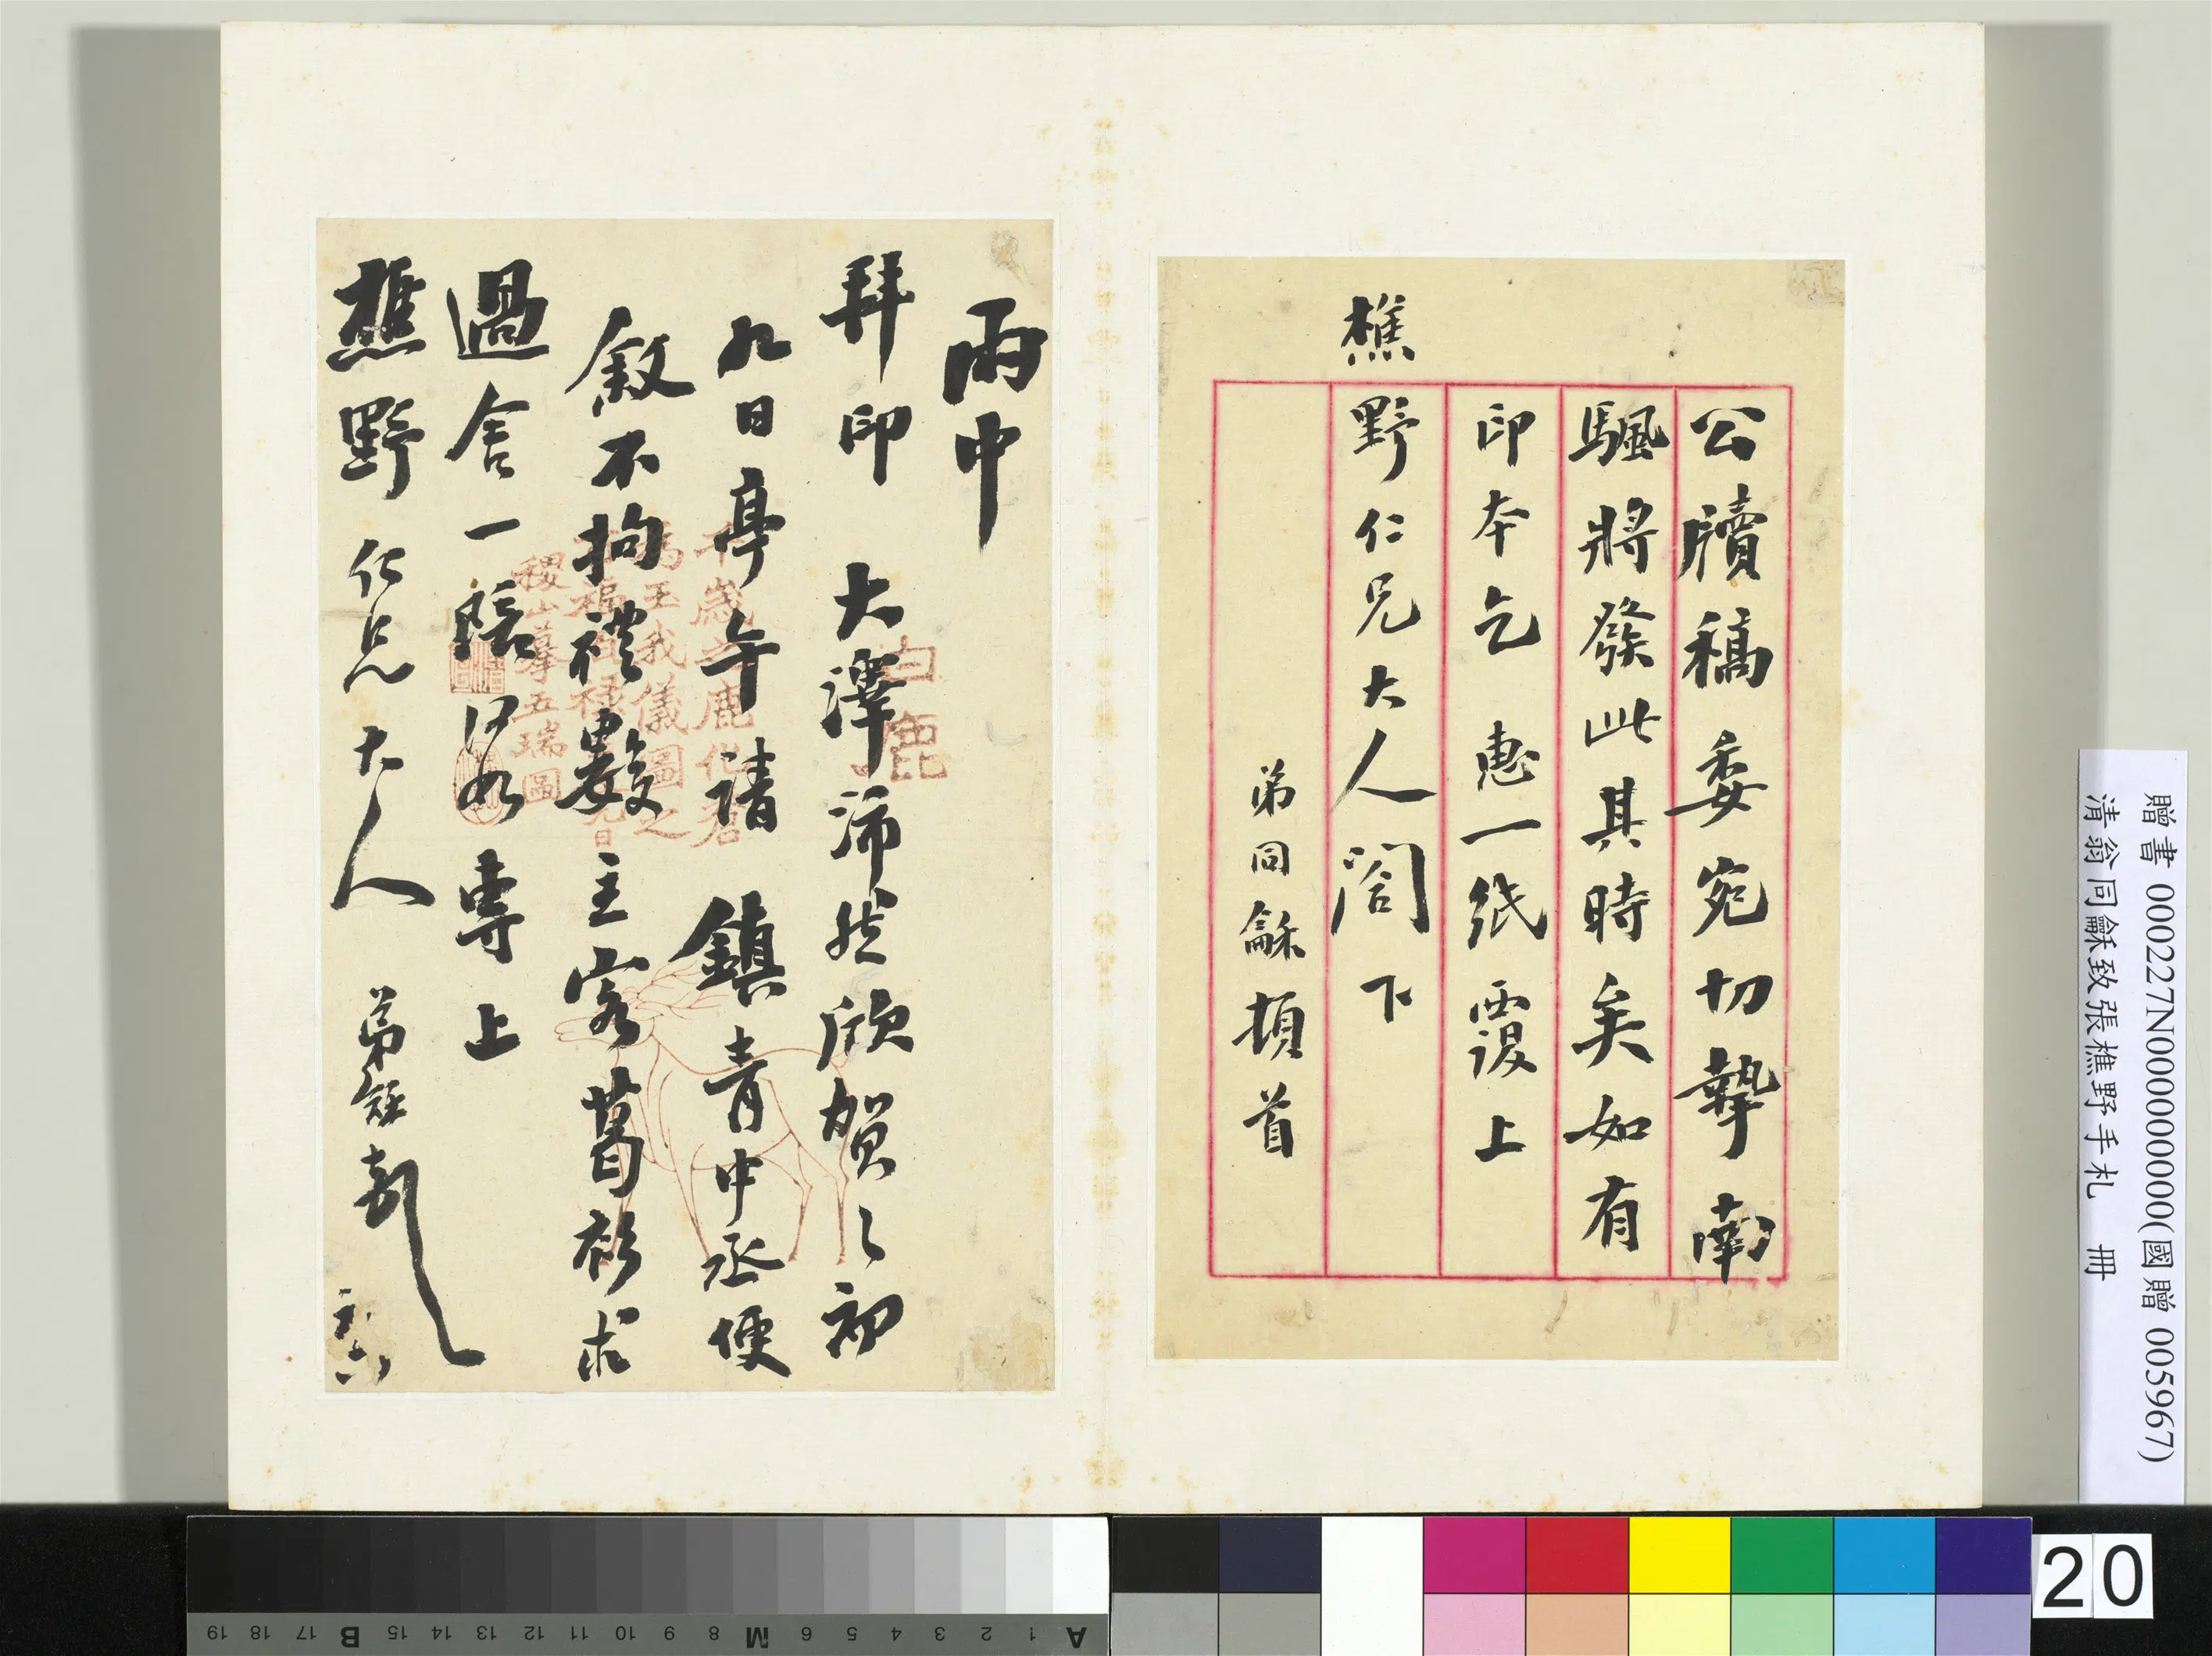 公牘稿委宛切摯南
颿將發此其時矣如有
印本乞 惠一紙覆上
樵野仁兄大人閣下
弟同龢頓首
雨中
拜印 大澤沛然欣賀〻初
九日亭午請 鎮青中丞便
敘不拘禮數主客葛衫求
過舍一陪 專上
樵野仁兄大人 弟 六
白鹿
千歲之鹿化為蒼
王我儀圖之
稷山摹五瑞圖
贈書 000227N000000000(國贈 005967)
清翁同龢致張樵野手札 冊
20
19 18 17 B 16 15 14 13 12 11 10 9 8 M 7 6 5 4 3 2 1 A